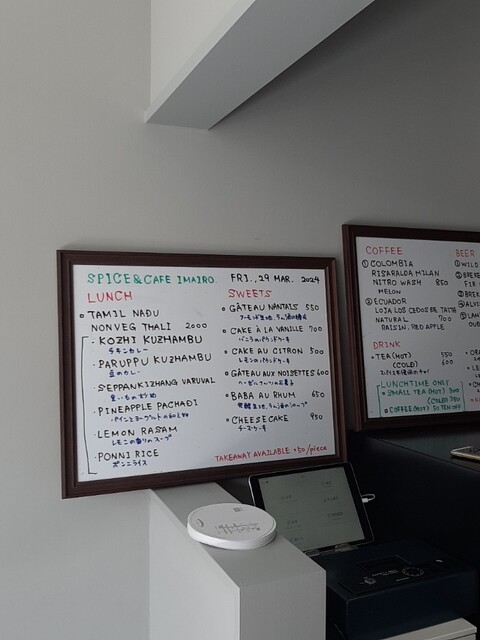 SPICE&CAFE IMAIRO. FRI, 29 MAR. 2024
LUNCH
TAMIL NADU
NONVEG THALI 2000
KOZHI KUZHAMBU
チキンカレー
PARUPPU KUZHAMBU
豆のカレー
SEPPANKIZHANG VARUVAL
里いもの炒め
PINEAPPLE PACHADI
LEMON RASAM
レモンの香りのスープ
PONNI RICE
ポンニライス
SWEETS
GÂTEAU NANTAIS 550
CAKE À LA VANILLE 700
バニラのパウンドケーキ
CAKE AU CITRON 500
レモンのパウンドケーキ
GÂTEAU AUX NOISETTES 600
BABA AU RHUM 650
CHEESECAKE 950
チーズケーキ
TAKEAWAY AVAILABLE +50/piece
COFFEE
① COLOMBIA
RISARALDA MILAN
NITRO WASH 850
MELON
② ECUADOR
NATURAL 700
RAISIN, RED APPLE
DRINK
TEA (HOT) 550
(COLD) 600
LUNCHTIME ONLY
SMALL TEA (HOT) 300
(COLD) 350
COFFEE (HOT) 50 YEN OFF
BEER
① WILD